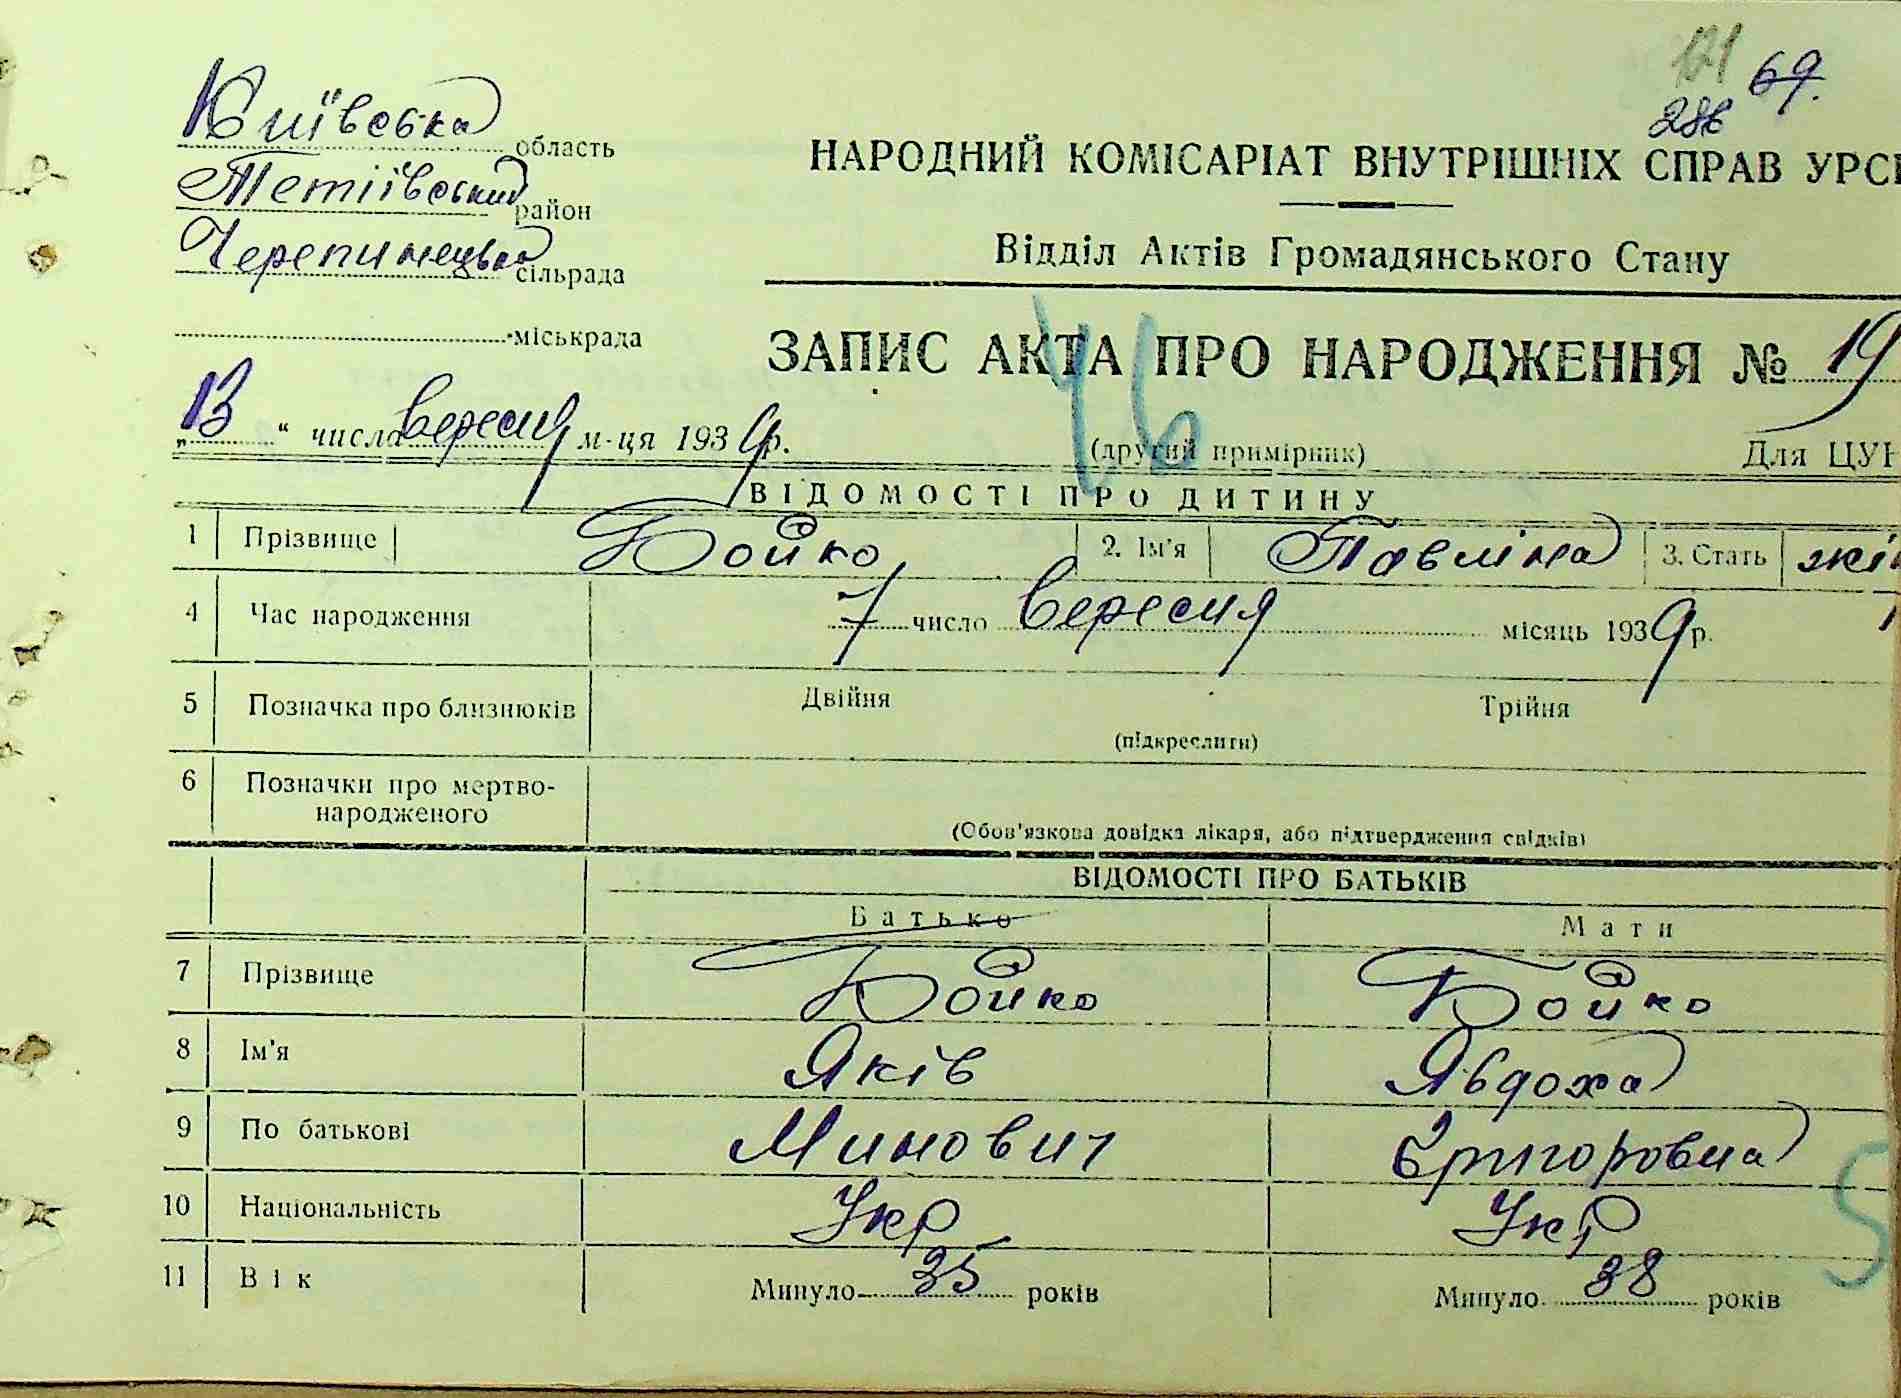 121 69.
286
Київська область
Тетіївський район
Черепинецька сільрада
міськрада
НАРОДНИЙ КОМІСАРІАТ ВНУТРІШНІХ СПРАВ УРСР
Відділ Актів Громадянського Стану
46
ЗАПИС АКТА ПРО НАРОДЖЕННЯ № 19
„13“ числа вересня м-ця 1939р.
(другий примірник)
Для ЦУН
ВІДОМОСТІ ПРО ДИТИНУ
1 Прізвище Бойко 2. Ім'я Павліна 3. Стать жін
4 Час народження 7 число вересня місяць 1939р.
5 Позначка про близнюків Двійня Трійня
(підкреслити)
6 Позначки про мертво-
народженого
(Обов'язкова довідка лікаря, або підтвердження свідків)
ВІДОМОСТІ ПРО БАТЬКІВ
Батько Мати
7 Прізвище Бойко Бойко
8 Ім'я Яків Явдоха
9 По батькові Минович Григоровна
10 Національність Укр Укр
5
11 Вік Минуло 35 років Минуло 38 років